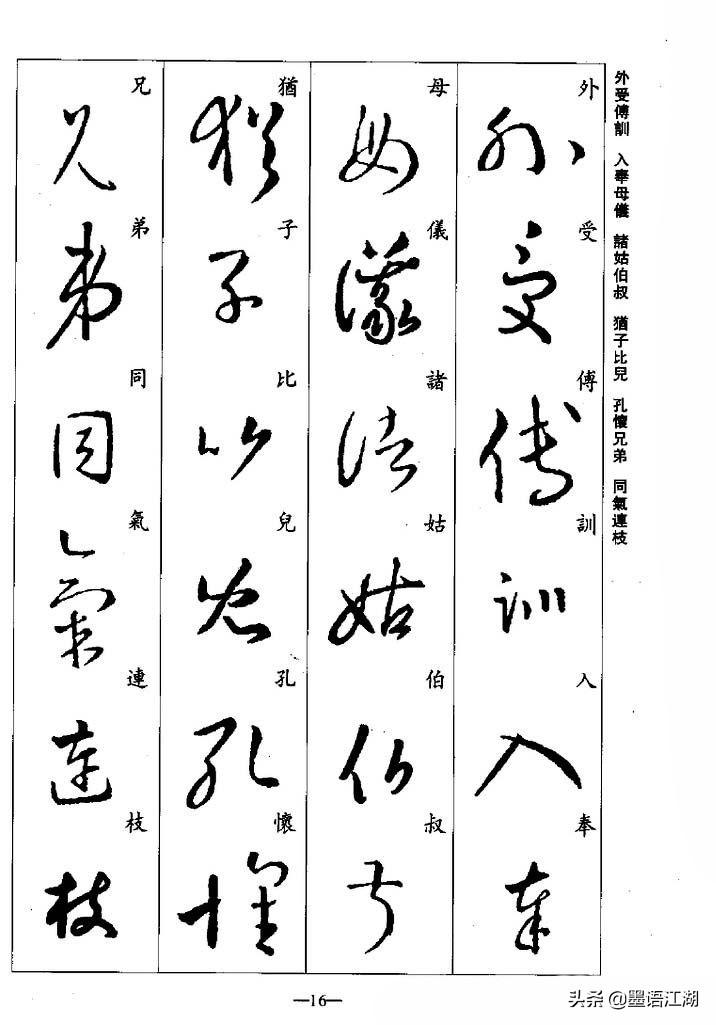 外受傅訓 入奉母儀 諸姑伯叔 猶子比兒 孔懷兄弟 同氣連枝
外受傅訓入奉
母儀諸姑伯叔
猶子比兒孔懷
兄弟同氣連枝
—16—
头条 @墨语江湖